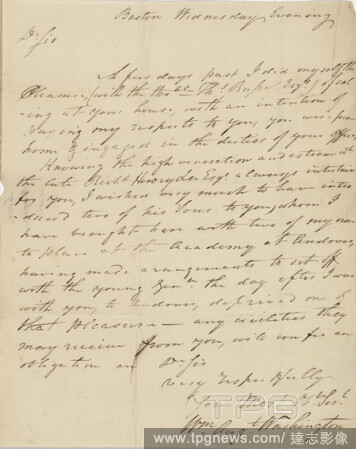 Boston Wednesday Evening
Dr Sir
A few days past I did myself the
Pleasure (with the Honble Thos Esqr) of call
ing at your house, with an intention of
paying my respects to you, you were from
home engaged in the duties of your office.
Knowing the high veneration and esteem
the late Right Henry Lee Esqr always entertain
for you, I wished very much to have intro
duced two of his Sons to you, whom I
have brought here with two of my own
to place at the Academy at Andover,
having made arangements to set off
with the young Gen the day after I was
with you, to Andover, deprived me of
that pleasure — any civilities they
may receive from you, will confer an
obligation on
Dr Sir
Very Respectfully
Your
Wm Washington
TPG
www.tpgnews.com / 達志影像